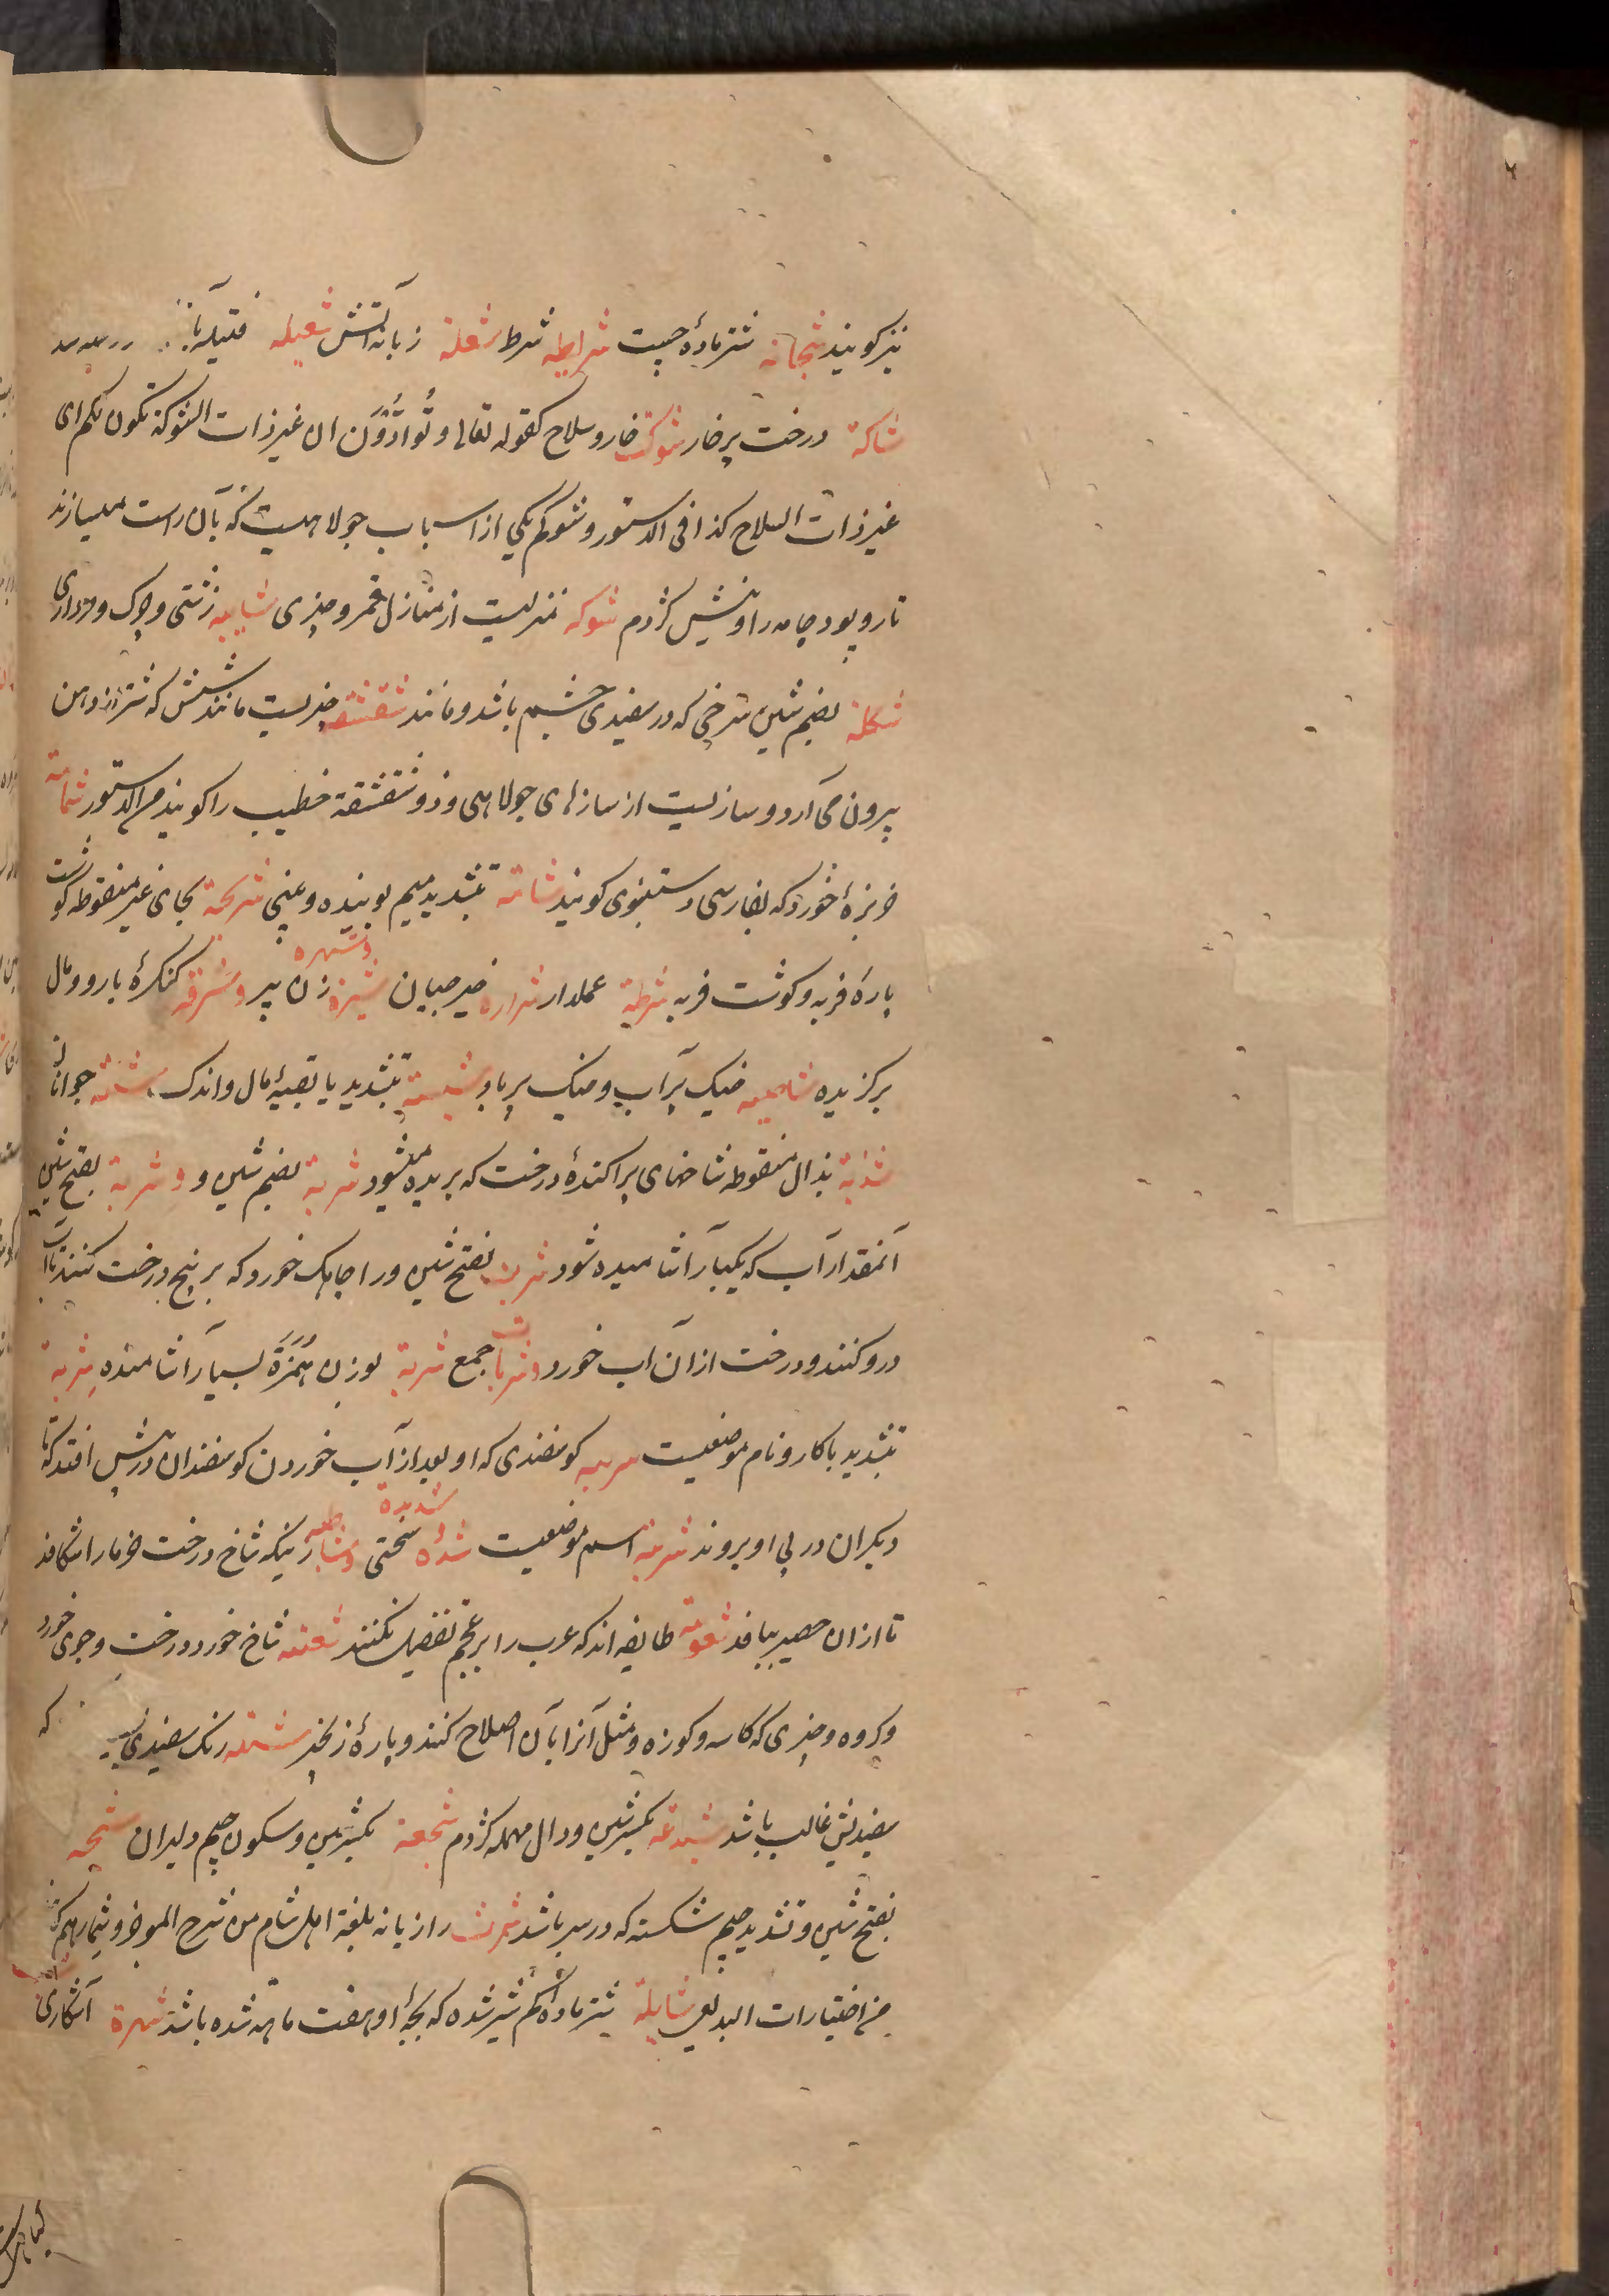 نیز کویند شجانه شتر مادهٔ چست شرایطه شرط شعلة زبانه آتش شعیله فتیله با
شاکة درخت پر خار شوکت خار و سلاح کقوله تعالی و تُوادُّوْنَ ان غیر ذات الشوکة تکون لکم ای
غیر ذات السلاح کذا فی الدستور و شوکه یکی از اسباب جولاهیست که بآن راست میسازند
تار و پود جامه را و نیش کژدم شوکه منزلیست از منازل قمر و چیزی شایبه زشتی و چرک و مرداری
شکلة بضم شین سرخی که در سفیدی چشم باشد و مانند شقشقه چیزیست مانند شش که شتر از دهن
بیرون می آرد و سازیست از سازهای جولاهی و ذو شقشقة خطیب را کویند من الدستور شمامة
خربزهٔ خورد که بفارسی دستنبوی کویند شامة بتشدید میم بوینده و بینی شریحة بحای غیر منقوطه کوشت
پارهٔ فربه و کوشت فربه شرطة عملدار شراره شیزه و شهره زن پیر و شرفه کنکرهٔ بارو و مال
برکزیده شاصیه خیک پر آب و خیک پر باد شییة بتشدید یا بقیهٔ مال و اندک
شذبة بذال منقوطه شاخهای پراکندهٔ درخت که بریده میشود شربة بضم شین و و شربة بفتح شین
آنمقدار آب که یکبار آشامیده شود شربه بفتح شین و را جایک خورد که بر بیخ درخت کنند تا آب
درو کنند و درخت ازان آب خورد و شربات جمع شربة بوزن هُمَزَة بسیار آشامنده شربة
بتشدید با کار و نام موضعیست کوسفندی که او بعد از آب خوردن کوسفندان در پیش افتد که تا
دیکران در پی او بروند شربة اسم موضعیست شدّه و شدیدة سختی و شاطبه زنیکه شاخ درخت خرما را شکافد
تا ازان حصیر ببافد شعوبیة طایفه اند که عرب را بر عجم تفضیل نکنند شعبه شاخ خورد درخت و جوی خورد
و کروه و چیزی که کاسه و کوزه و مثل آنرا بآن اصلاح کنند و پارهٔ زنجیر رنک سفیدی که
سفیدیش غالب باشد شبدعة بکسر شین و دال مهمله کژدم شجعة بکسر شین و سکون جیم دلیران شجه
بفتح شین و تشدید جیم شکسته که در سر باشد رازیانه بلغة اهل شام من شرح الموجز و شمار هم
من اختیارات البدیعی شایلة شتر مادهٔ کم شیر شده که بچهٔ او هفت ماهه شده باشد شهرة آشکاری